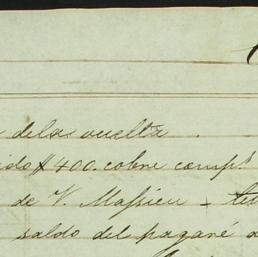 dela vuelta
ido $400. cobre camp.º
de V. Massieu –
saldo del pagaré